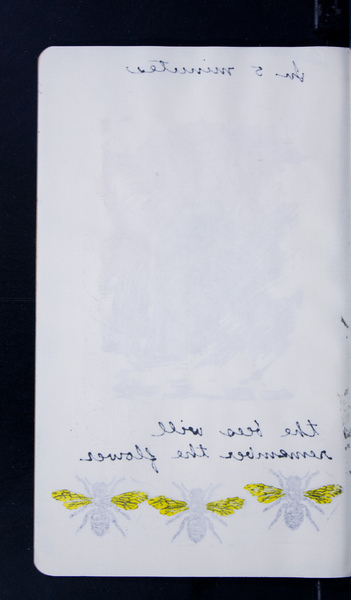 In 5 minutes
the bees will
remember the flower